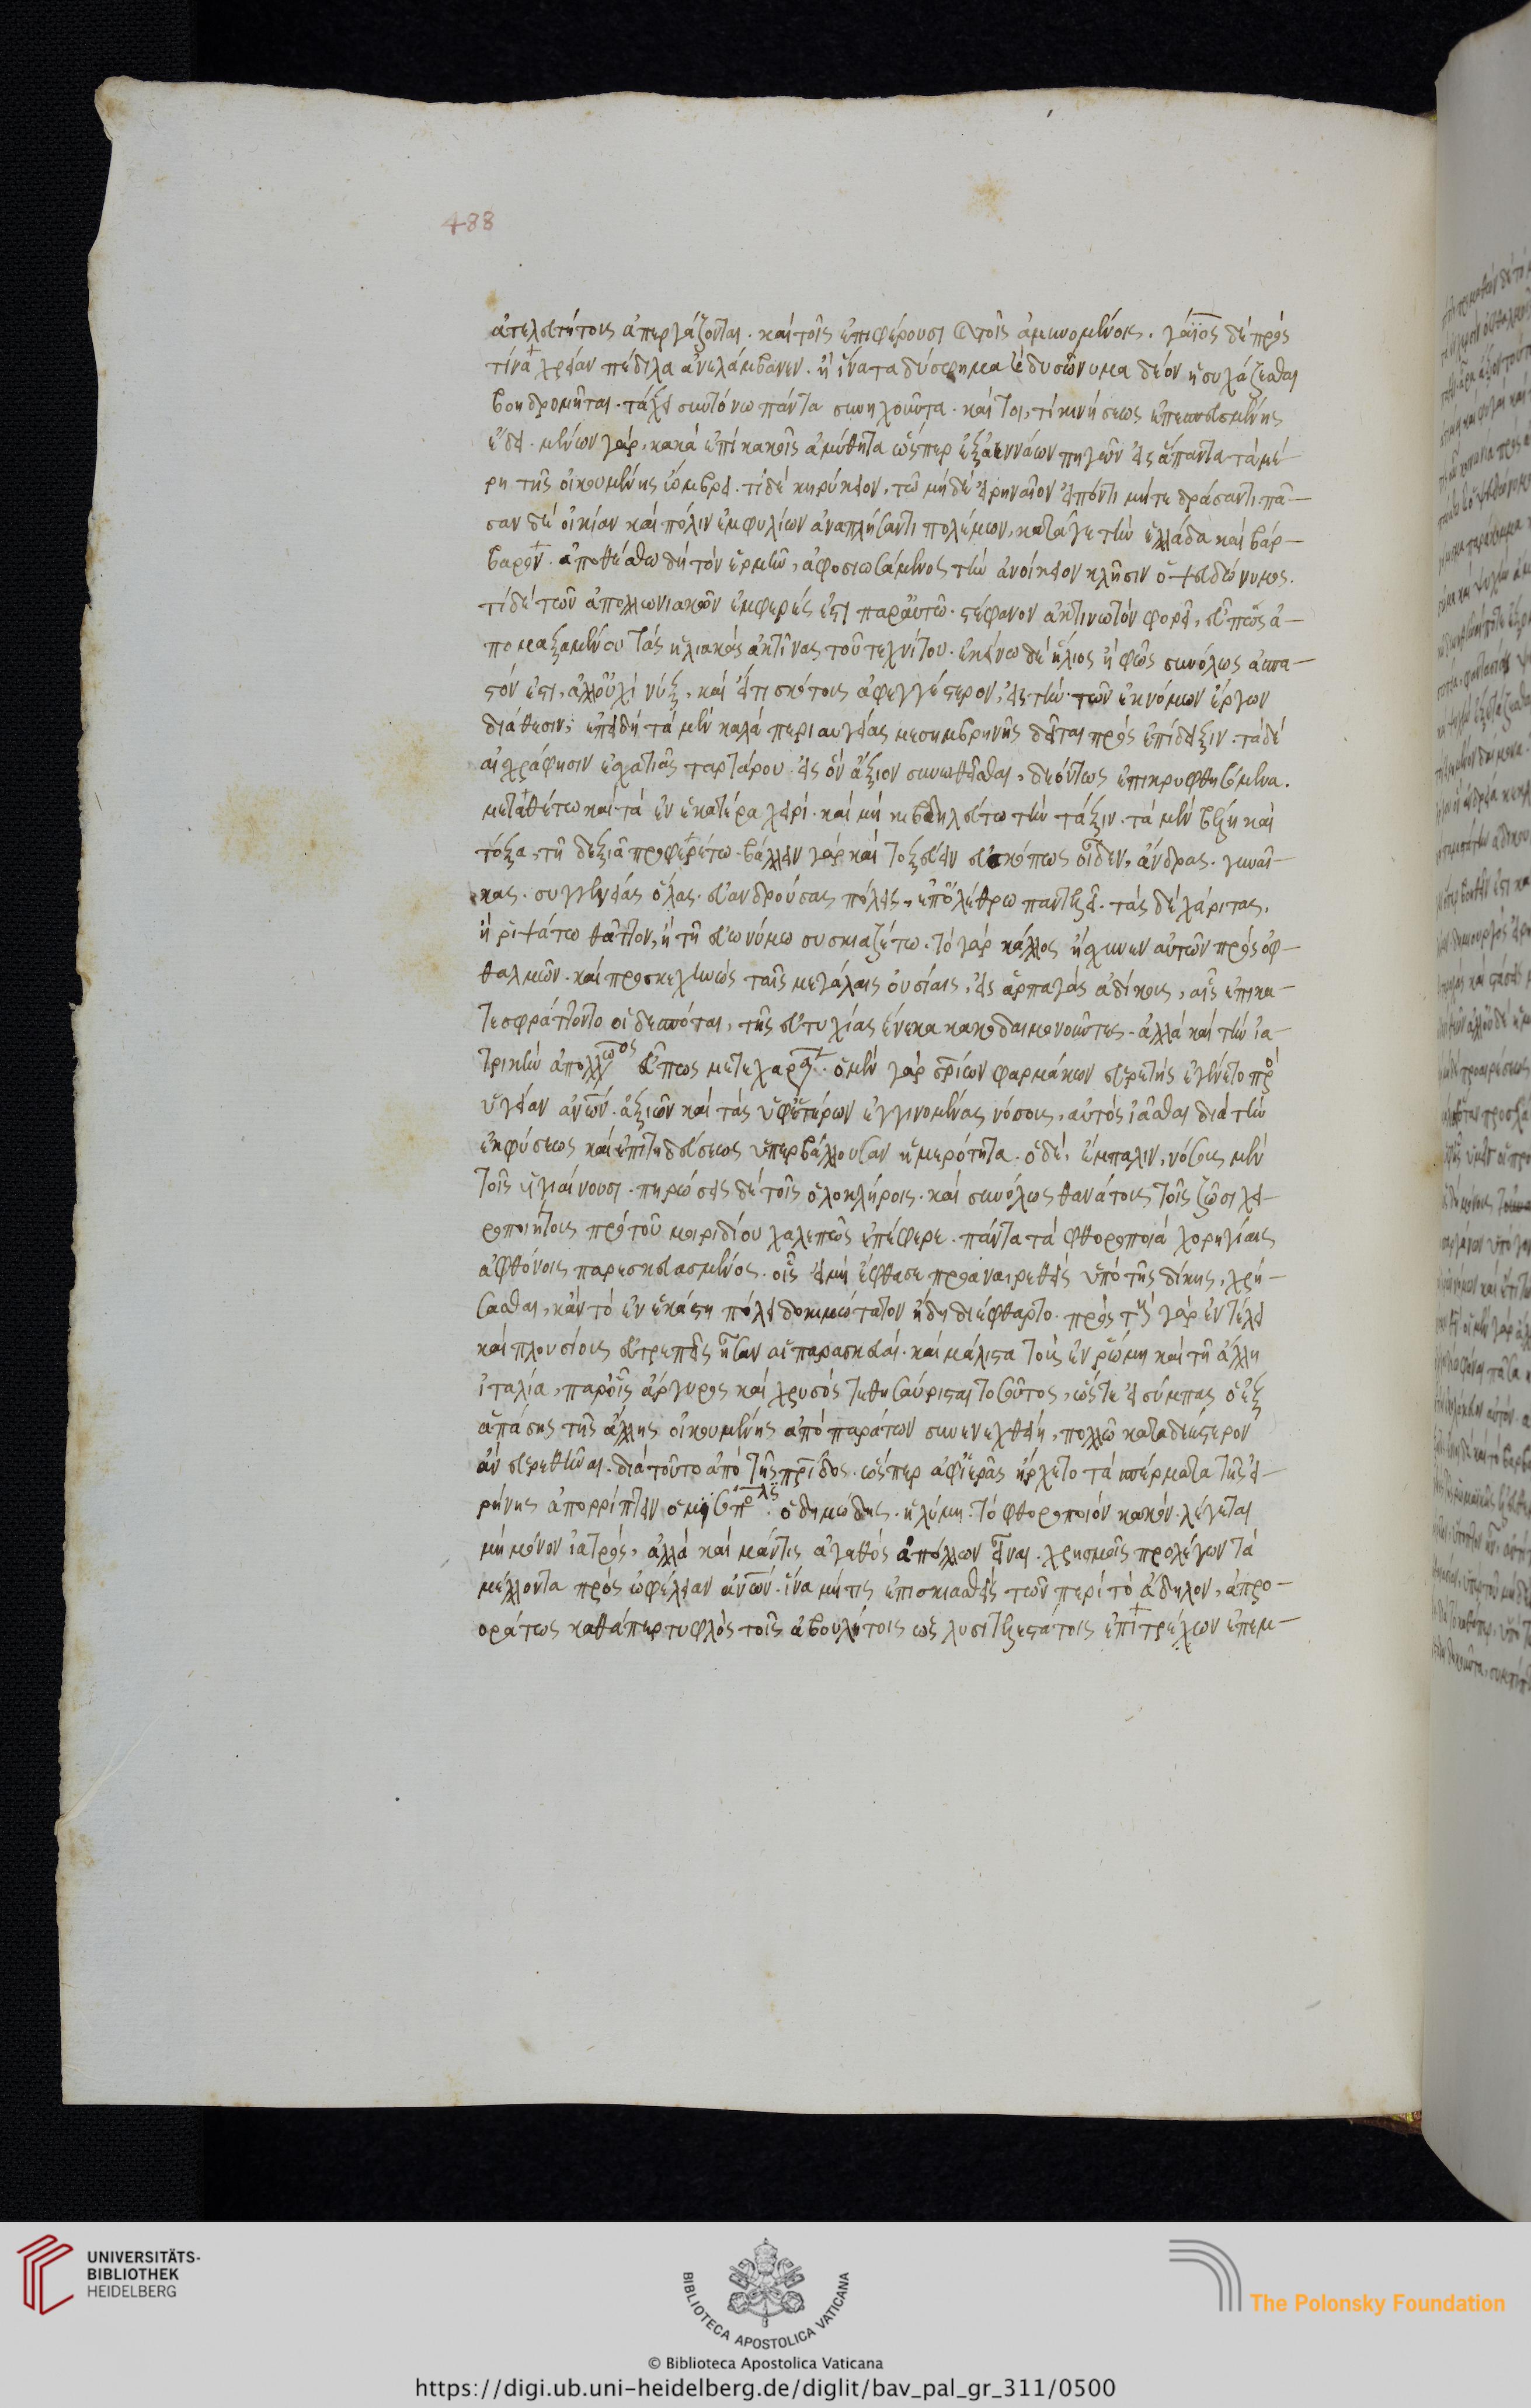 488
ἀτελευτήτους ἀπεργάζονται. καὶ τοῖς ἐπιφέρουσι καὶ τοῖς ἀμυνομένοις. γάϊος δὲ πρὸς
τίνα χρείαν πέδιλα ἀνελάμβανεν. ἢ ἵνα τὰ δύσφημα καὶ δυσώνυμα δέον ἡσυχάζεσθαι
βοηδρομῆται. τάχει συντόνω πάντα συνηχοῦντα. καί τοι, τί κινήσεως ἐπεσπευσμένης
ἔδει. μένων γὰρ, κακὰ ἐπὶ κακοῖς ἀμύθητα ὥσπερ ἐξ ἀεννάων πηγῶν εἰς ἅπαντα τὰ μέ-
ρη τῆς οἰκουμένης ὤμβρει. τί δὲ κηρύκειον, τῶ μηδὲ εἰρηναῖον εἰπόντι μήτε δράσαντι, πᾶ-
σαν δὲ οἰκίαν καὶ πόλιν ἐμφυλίων ἀναπλήσαντι πολέμων, κατάγε τὴν ἑλλάδα καὶ βάρ-
βαρον. ἀποθέσθω δὴ τὸν ἑρμῆν, ἀφοσιωσάμενος τὴν ἀνοίκειον κλῆσιν ὁ ψευδώνυμος.
τί δὲ τῶν ἀπολλωνιακῶν ἐμφερές ἐστι παρ' αὐτῶ. στέφανον ἀκτινωτὸν φορεῖ, εὖ πως ἀ-
πομαξαμένου τὰς ἡλιακὰς ἀκτῖνας τοῦ τεχνίτου. ἐκείνω δὲ ἥλιος ἢ φῶς συνόλως ἀσπα-
στόν ἐστι, ἀλλ' οὐχὶ νὺξ, καὶ εἴ τι σκότους ἀφεγγέστερον, εἰς τὴν τῶν ἐκνόμων ἔργων
διάθεσιν; ἐπειδὴ τὰ μὲν καλὰ περιαυγείας μεσημβρινῆς δεῖται πρὸς ἐπίδειξιν. τὰ δὲ
αἰσχρά φησιν ἐσχατιᾶς ταρτάρου. εἰς ὃν ἄξιον συνωθεῖσθαι, δεόντως ἐπικρυφθησόμενα.
μεταθέτω καὶ τὰ ἐν ἑκατέρα χειρὶ. καὶ μὴ κιβδηλευέτω τὴν τάξιν. τὰ μὲν βέλη καὶ
τόξα, τῆ δεξιᾶ προφερέτω. βάλλειν γὰρ καὶ τοξεύειν εὐσκόπως οἶδεν, ἄνδρας. γυναῖ-
κας. συγγενείας ὅλας. εὐανδρούσας πόλεις, ἐπ' ὀλέθρω παντελεῖ. τὰς δὲ χάριτας,
ἢ ῥιψάτω θᾶττον, ἢ τῆ εὐωνύμω συσκιαζέτω. τὸ γὰρ κάλλος ᾔσχυνεν αὐτῶν πρὸς ὀφ-
θαλμῶν. καὶ προσκεχηνὼς ταῖς μεγάλαις οὐσίαις, εἰς ἁρπαγὰς ἀδίκους, αἷς ἐπικα-
τεσφράττοντο οἱ δεσπόται, τῆς εὐτυχίας ἕνεκα κακοδαιμονοῦντες. ἀλλὰ καὶ τὴν ἰα-
τρικὴν ἀπόλλωνος εὖ πως μετεχαραξ. ὁ μὲν γὰρ σωτηρίων φαρμάκων εὑρετὴς ἐγένετο πρὸ
ὑγείαν ἀνων. ἀξιῶν καὶ τὰς ὑφ' ἑτέρων ἐγγινομένας νόσους, αὐτὸς ἰᾶσθαι διὰ τὴν
ἐκ φύσεως καὶ ἐπιτηδεύσεως ὑπερβάλλουσαν ἡμερότητα. ὁ δὲ, ἔμπαλιν, νόσους μὲν
τοῖς ὑγιαίνουσι. πηρώσεις δὲ τοῖς ὁλοκλήροις. καὶ συνόλως θανάτους τοῖς ζῶσι χει-
ροποιήτους πρὸ τοῦ μοιριδίου χαλεποὺς ἐπέφερε. πάντα τὰ φθοροποιὰ χορηγίαις
ἀφθόνοις παρεσκευασμένος. οἷς εἰ μὴ ἔφθασε προαναιρεθεὶς ὑπὸ τῆς δίκης, χρή-
σασθαι, κἂν τὸ ἐν ἑκάστη πόλει δοκιμώτατον ἤδη διέφθαρτο. πρὸς τοὺς γὰρ ἐν τέλει
καὶ πλουσίους εὐτρεπεῖς ἦσαν αἱ παρασκευαὶ. καὶ μάλιστα τοὺς ἐν ῥώμη καὶ τῆ ἄλλη
ἰταλία, παρ' οἷς ἄργυρος καὶ χρυσὸς τεθησαύρισται τοσοῦτος, ὥστε εἰ σύμπας ὁ ἐξ
ἁπάσης τῆς ἄλλης οἰκουμένης ἀπὸ περάτων συνενεχθείη, πολλῶ καταδεέστερον
ἂν εὑρεθῆναι. διὰ τοῦτο ἀπὸ τῆς πρίδος. ὥσπερ ἀφ' ἱερᾶς ἤρχετο τὰ σπέρματα τῆς εἰ-
ρήνης ἀπορρίπτειν ὁ μισόπολις. ὁ δημώδης. ἡ λύμη. τὸ φθοροποιὸν κακόν. λέγεται
μὴ μόνον ἰατρὸς, ἀλλὰ καὶ μάντις ἀγαθὸς ἀπόλλων εἶναι. χρησμοῖς προλέγων τὰ
μέλλοντα πρὸς ὠφέλειαν ἀνων. ἵνα μή τις ἐπισκιασθεὶς τῶν περὶ τὸ ἄδηλον, ἀπρο-
οράτως καθάπερ τυφλὸς τοῖς ἀβουλήτοις ὡς λυσιτελεστάτοις ἐπιτρέχων ἐπεμ-
UNIVERSITÄTS-
BIBLIOTHEK
HEIDELBERG
BIBLIOTECA APOSTOLICA VATICANA
The Polonsky Foundation
© Biblioteca Apostolica Vaticana
https://digi.ub.uni-heidelberg.de/diglit/bav_pal_gr_311/0500